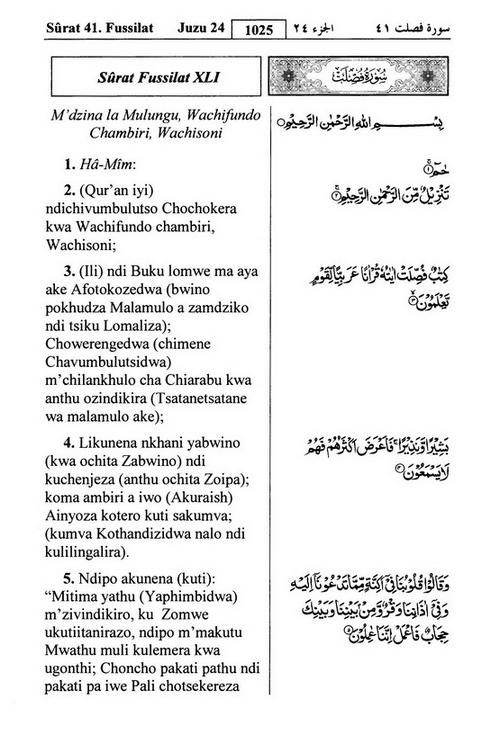 Sûrat 41. Fussilat Juzu 24 1025 الجزء ٢٤ سورة فصلت ٤١
Sûrat Fussilat XLI
سُورَةُ فُصِّلَتْ
M’dzina la Mulungu, Wachifundo
Chambiri, Wachisoni
بِسْمِ اللهِ الرَّحْمٰنِ الرَّحِيْمِ○
1. Hâ-Mîm:
حٰمٓ ۚ﴿١﴾
2. (Qur’an iyi)
ndichivumbulutso Chochokera
kwa Wachifundo chambiri,
Wachisoni;
تَنْزِيْلٌ مِّنَ الرَّحْمٰنِ الرَّحِيْمِ ۚ﴿٢﴾
3. (Ili) ndi Buku lomwe ma aya
ake Afotokozedwa (bwino
pokhudza Malamulo a zamdziko
ndi tsiku Lomaliza);
Chowerengedwa (chimene
Chavumbulutsidwa)
m’chilankhulo cha Chiarabu kwa
anthu ozindikira (Tsatanetsatane
wa malamulo ake);
كِتٰبٌ فُصِّلَتْ اٰيٰتُهٗ قُرْاٰنًا عَرَبِيًّا لِّقَوْمٍ
يَّعْلَمُوْنَ ۙ﴿٣﴾
4. Likunena nkhani yabwino
(kwa ochita Zabwino) ndi
kuchenjeza (anthu ochita Zoipa);
koma ambiri a iwo (Akuraish)
Ainyoza kotero kuti sakumva;
(kumva Kothandizidwa nalo ndi
kulilingalira).
بَشِيْرًا وَّنَذِيْرًا ۚ فَاَعْرَضَ اَكْثَرُهُمْ فَهُمْ
لَا يَسْمَعُوْنَ ﴿٤﴾
5. Ndipo akunena (kuti):
“Mitima yathu (Yaphimbidwa)
m’zivindikiro, ku Zomwe
ukutiitanirazo, ndipo m’makutu
Mwathu muli kulemera kwa
ugonthi; Choncho pakati pathu ndi
pakati pa iwe Pali chotsekereza
وَقَالُوْا قُلُوْبُنَا فِيْٓ اَكِنَّةٍ مِّمَّا تَدْعُوْنَآ اِلَيْهِ
وَفِيْٓ اٰذَانِنَا وَقْرٌ وَّمِنْۢ بَيْنِنَا وَبَيْنِكَ
حِجَابٌ فَاعْمَلْ اِنَّنَا عٰمِلُوْنَ ﴿٥﴾